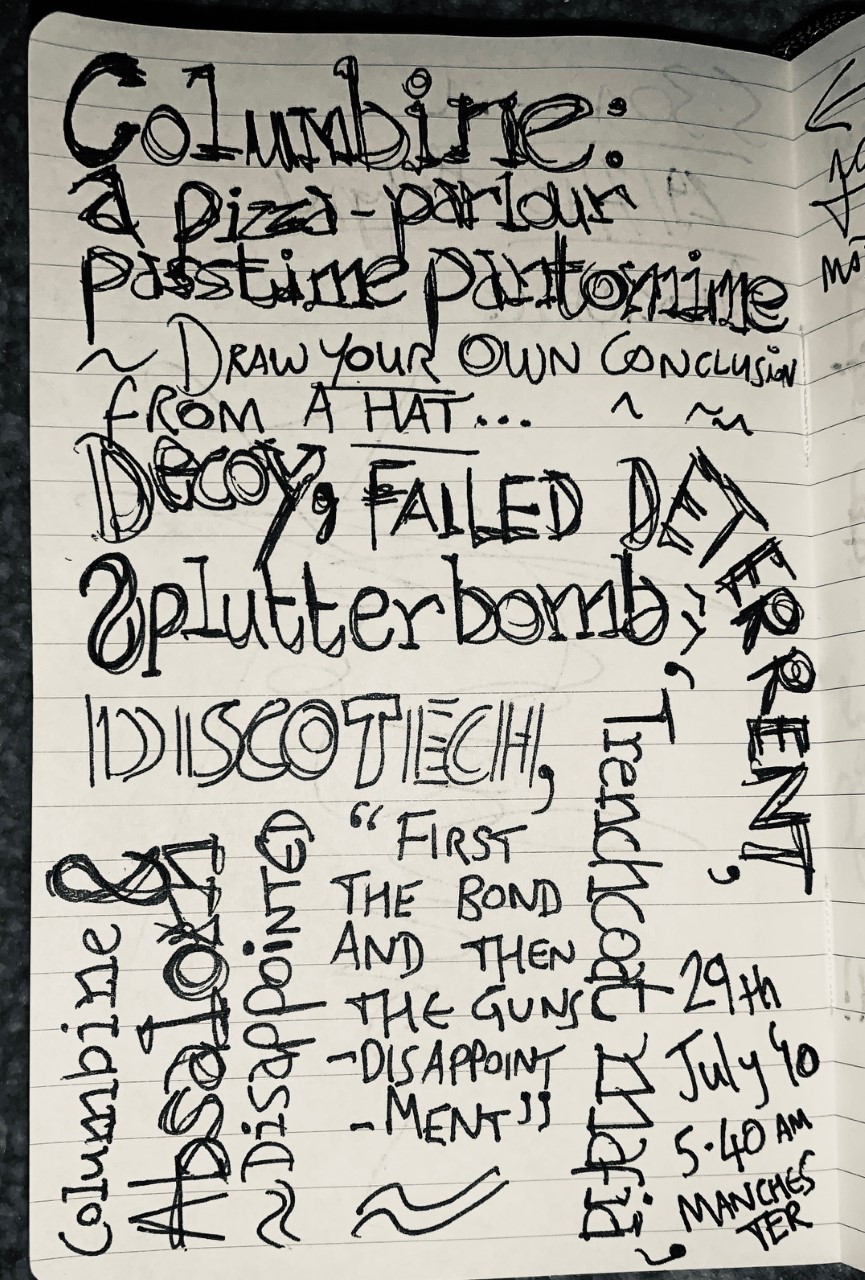 Columbine:
a pizza-parlour
passtime pantomime
~ DRAW YOUR OWN CONCLUSION
FROM A HAT...
Decoy, FAILED DETERRENT,
Splutterbomb,
DISCOTECH,
Trenchcoat Mafia,
"FIRST
THE BOND
AND THEN
THE GUNS
-DISAPPOINT
-MENT"
Columbine &
Absalom
~DISAPPOINTED
29th
July '40
5.40 AM
MANCHES
TER